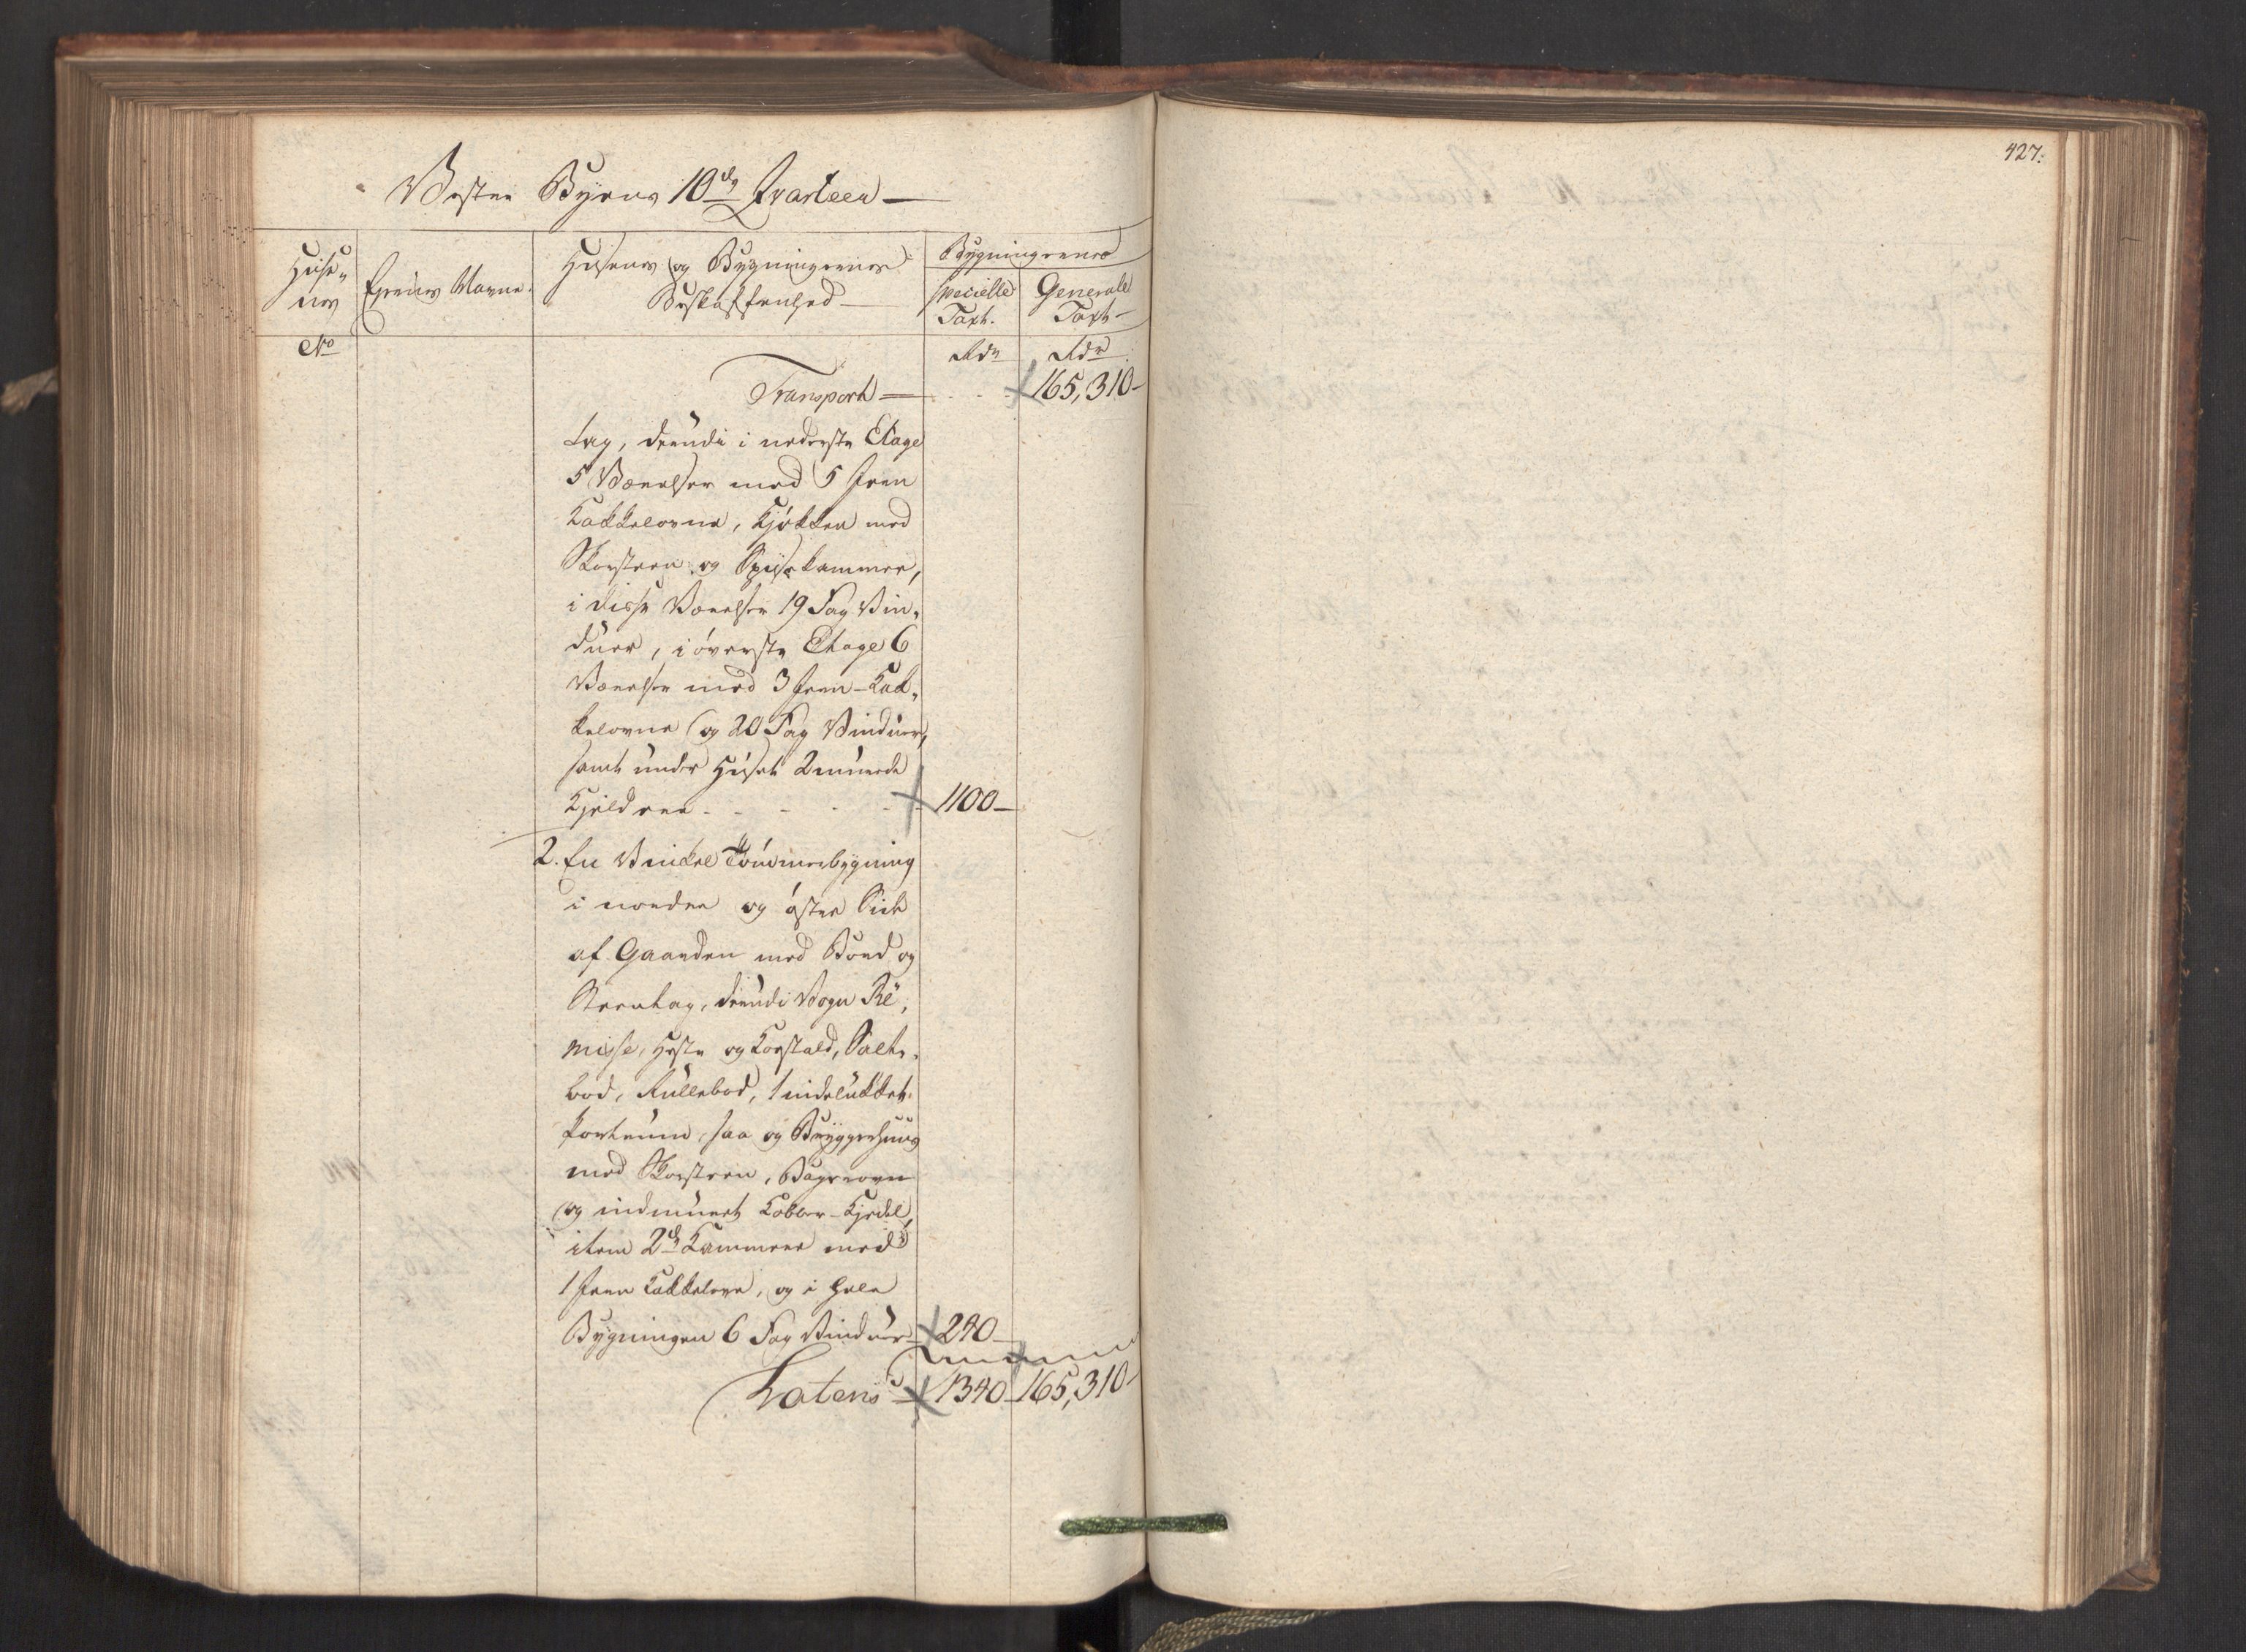 427.
Vester Byens 10de Qvarteer
Huse-
nes
Eyernes Navne.
Husenes og Bygningernes
Beskaffenhed
Bygningernes
specielle
Taxt.
Generale
Taxt
No
Rdr
Rdr
Transport
165,310
tag, derudi i nederste Etage
5 Værelser med 5 Jern
Kakkelovne, Kjøkken med
Skorsteen og Spiisekammer,
i disse Værelser 19 Fag Vin-
duer, i øverste Etage 6
Værelser med 3 Jern-Kak-
kelovne og 20 Fag Vinduer,
samt under Huset 2 murede
Kjeldere
1100
2. En Vinkel Tømmerbygning
i norder og øster Side
af Gaarden med Bord og
Steentag, derudi Vogn Re-
misse, Heste og Kostald, Salte-
bod, Rullebod, 1 indelukket
Portrum, saa og Bryggerhuus
med Skorsteen, Bagerovn
og indmuret Kobber-Kjedel,
item 2de Kammere med
1 Jern Kakkelovn, og i hele
Bygningen 6 Fag Vinduer
240
Lateris
1340
165,310